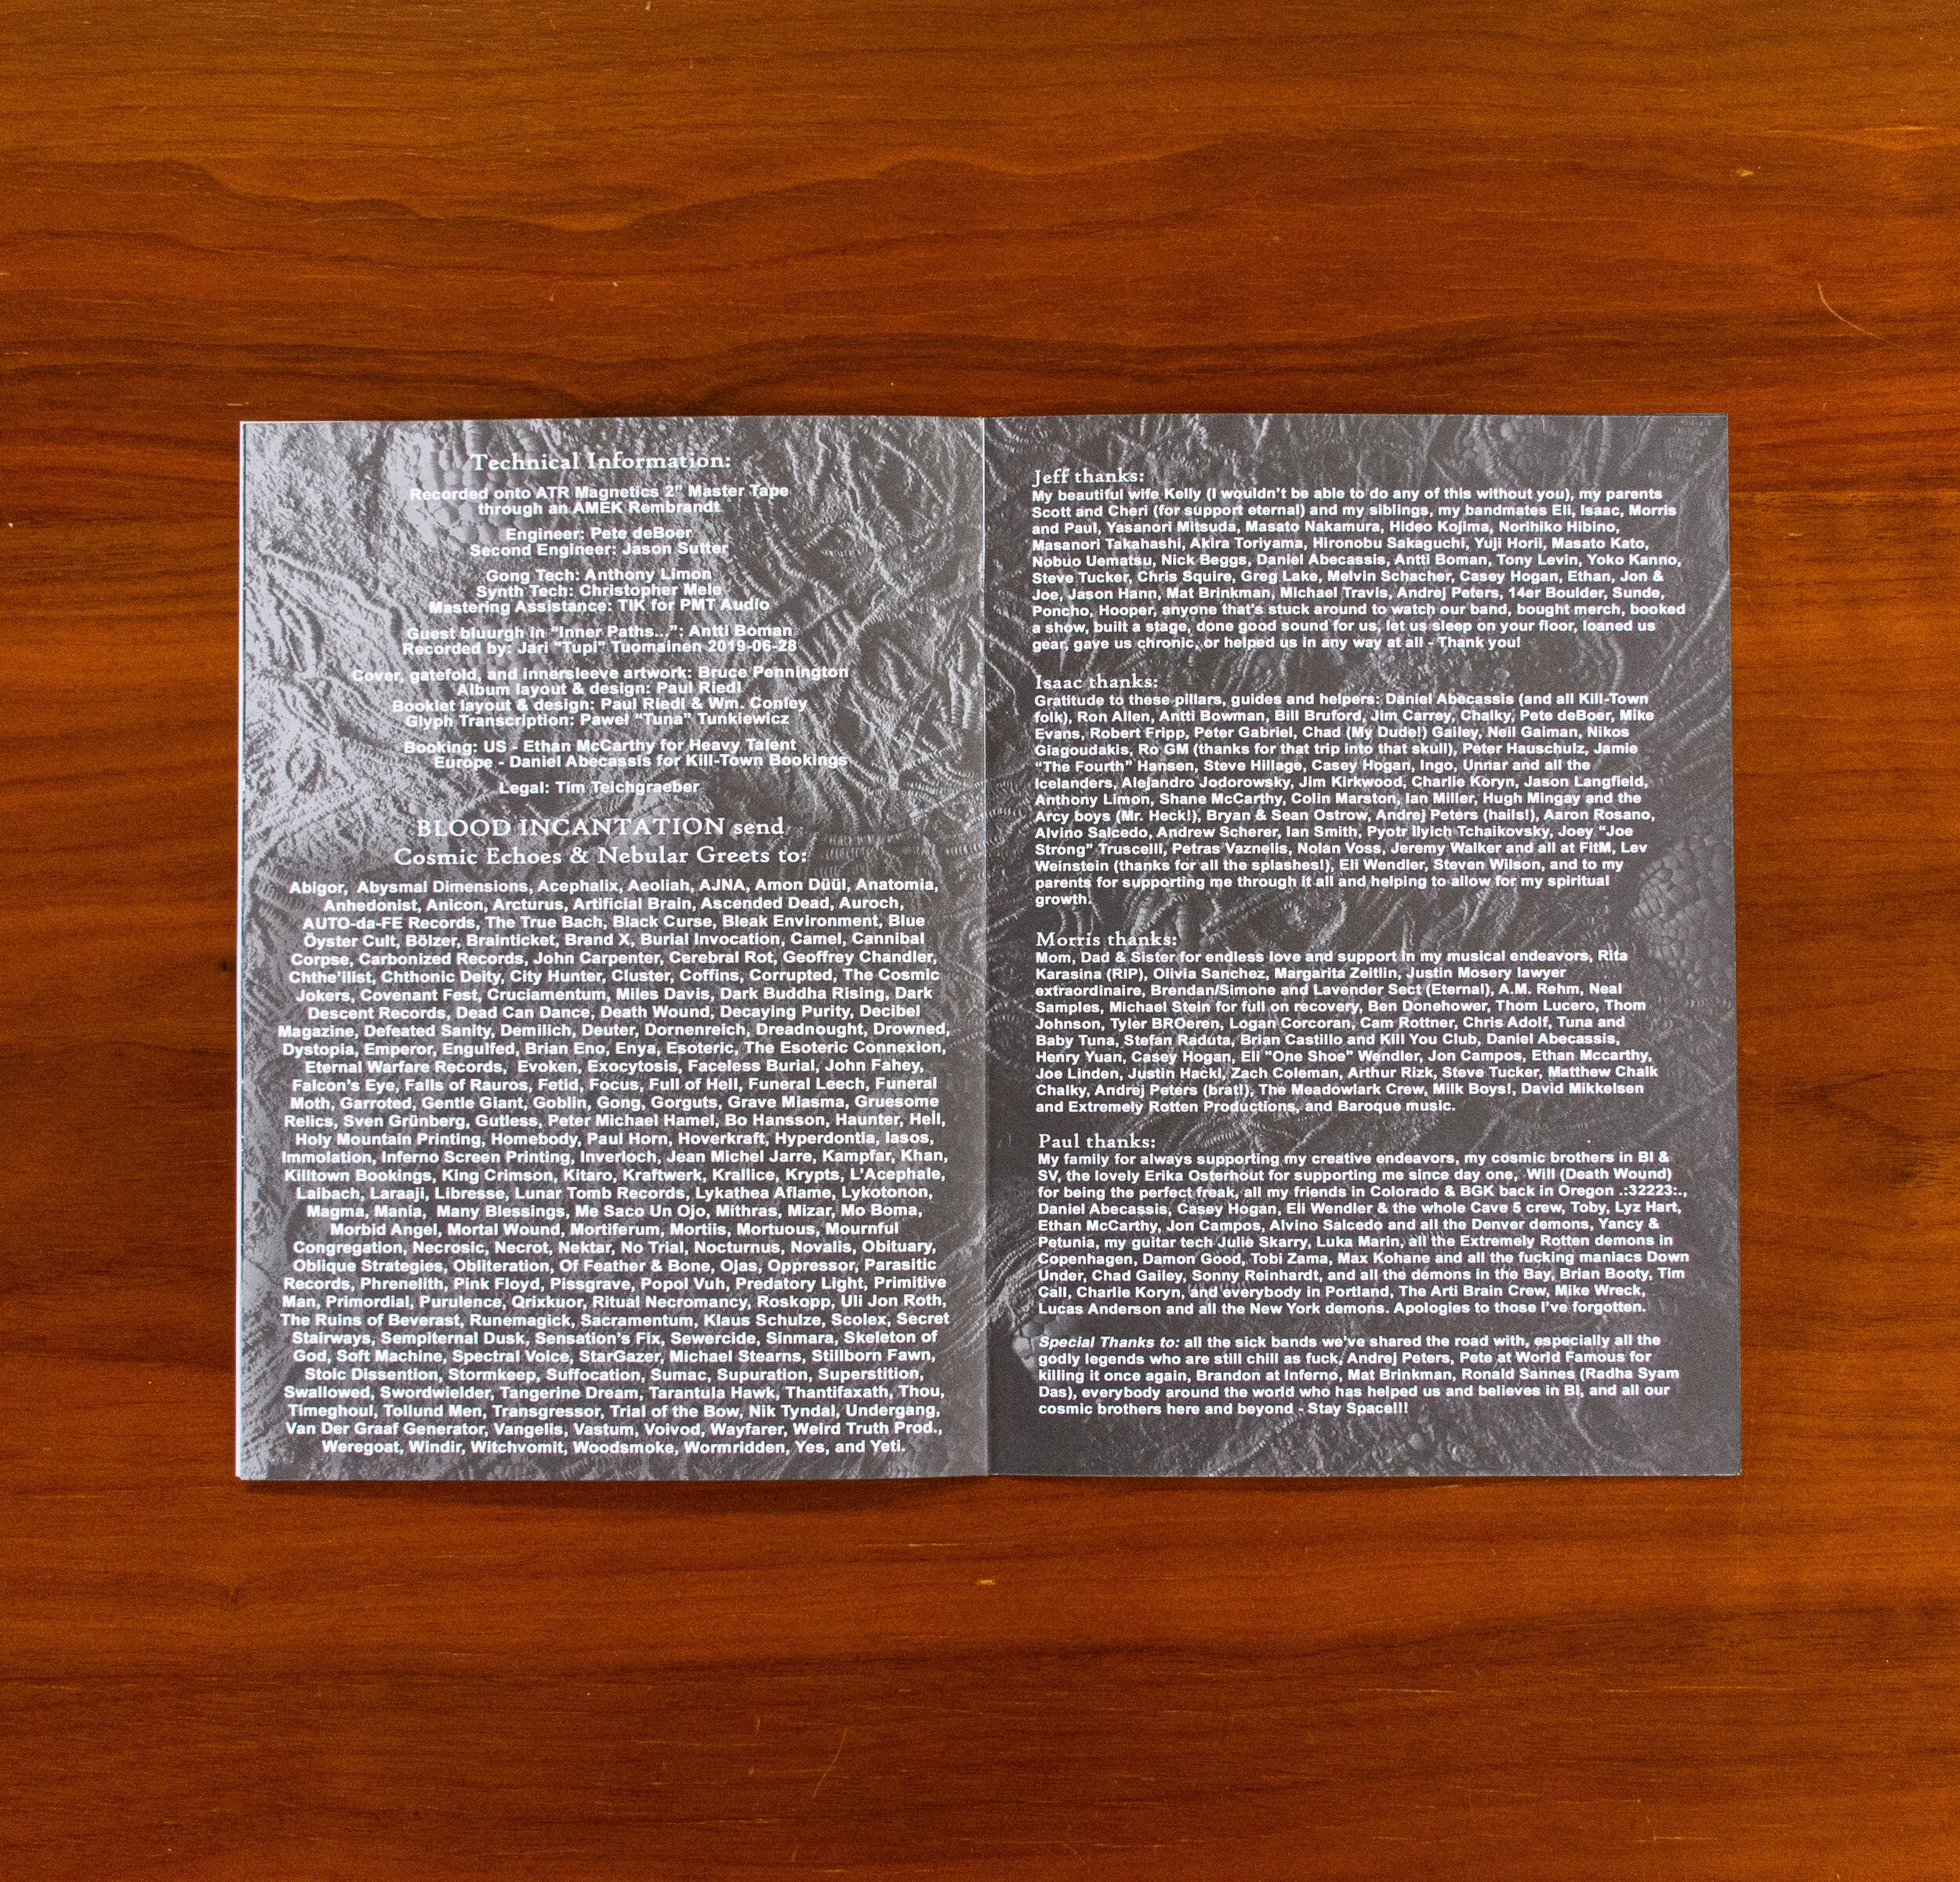 Technical Information:
Recorded onto ATR Magnetics 2" Master Tape
through an AMEK Rembrandt
Engineer: Pete deBoer
Second Engineer: Jason Sutter
Gong Tech: Anthony Limon
Synth Tech: Christopher Mele
Mastering Assistance: TIK for PMT Audio
Guest bluurgh in “Inner Paths...”: Antti Boman
Recorded by: Jari "Tupi" Tuomainen 2019-06-28
Cover, gatefold, and innersleeve artwork: Bruce Pennington
Album layout & design: Paul Riedl
Booklet layout & design: Paul Riedl & Wm. Conley
Glyph Transcription: Paweł “Tuna” Tunkiewicz
Booking: US - Ethan McCarthy for Heavy Talent
Europe - Daniel Abecassis for Kill-Town Bookings
Legal: Tim Teichgraeber
BLOOD INCANTATION send
Cosmic Echoes & Nebular Greets to:
Abigor, Abysmal Dimensions, Acephalix, Aeoliah, AJNA, Amon Düül, Anatomia,
Anhedonist, Anicon, Arcturus, Artificial Brain, Ascended Dead, Auroch,
AUTO-da-FE Records, The True Bach, Black Curse, Bleak Environment, Blue
Öyster Cult, Bölzer, Brainticket, Brand X, Burial Invocation, Camel, Cannibal
Corpse, Carbonized Records, John Carpenter, Cerebral Rot, Geoffrey Chandler,
Chthe’ilist, Chthonic Deity, City Hunter, Cluster, Coffins, Corrupted, The Cosmic
Jokers, Covenant Fest, Cruciamentum, Miles Davis, Dark Buddha Rising, Dark
Descent Records, Dead Can Dance, Death Wound, Decaying Purity, Decibel
Magazine, Defeated Sanity, Demilich, Deuter, Dornenreich, Dreadnought, Drowned,
Dystopia, Emperor, Engulfed, Brian Eno, Enya, Esoteric, The Esoteric Connexion,
Eternal Warfare Records, Evoken, Exocytosis, Faceless Burial, John Fahey,
Falcon’s Eye, Falls of Rauros, Fetid, Focus, Full of Hell, Funeral Leech, Funeral
Moth, Garroted, Gentle Giant, Goblin, Gong, Gorguts, Grave Miasma, Gruesome
Relics, Sven Grünberg, Gutless, Peter Michael Hamel, Bo Hansson, Haunter, Hell,
Holy Mountain Printing, Homebody, Paul Horn, Hoverkraft, Hyperdontia, Iasos,
Immolation, Inferno Screen Printing, Inverloch, Jean Michel Jarre, Kampfar, Khan,
Killtown Bookings, King Crimson, Kitaro, Kraftwerk, Krallice, Krypts, L’Acephale,
Laibach, Laraaji, Libresse, Lunar Tomb Records, Lykathea Aflame, Lykotonon,
Magma, Mania, Many Blessings, Me Saco Un Ojo, Mithras, Mizar, Mo Boma,
Morbid Angel, Mortal Wound, Mortiferum, Mortiis, Mortuous, Mournful
Congregation, Necrosic, Necrot, Nektar, No Trial, Nocturnus, Novalis, Obituary,
Oblique Strategies, Obliteration, Of Feather & Bone, Ojas, Oppressor, Parasitic
Records, Phrenelith, Pink Floyd, Pissgrave, Popol Vuh, Predatory Light, Primitive
Man, Primordial, Purulence, Qrixkuor, Ritual Necromancy, Roskopp, Uli Jon Roth,
The Ruins of Beverast, Runemagick, Sacramentum, Klaus Schulze, Scolex, Secret
Stairways, Sempiternal Dusk, Sensation’s Fix, Sewercide, Sinmara, Skeleton of
God, Soft Machine, Spectral Voice, StarGazer, Michael Stearns, Stillborn Fawn,
Stoic Dissention, Stormkeep, Suffocation, Sumac, Supuration, Superstition,
Swallowed, Swordwielder, Tangerine Dream, Tarantula Hawk, Thantifaxath, Thou,
Timeghoul, Tollund Men, Transgressor, Trial of the Bow, Nik Tyndal, Undergang,
Van Der Graaf Generator, Vangelis, Vastum, Voivod, Wayfarer, Weird Truth Prod.,
Weregoat, Windir, Witchvomit, Woodsmoke, Wormridden, Yes, and Yeti.
Jeff thanks:
My beautiful wife Kelly (I wouldn't be able to do any of this without you), my parents
Scott and Cheri (for support eternal) and my siblings, my bandmates Eli, Isaac, Morris
and Paul, Yasanori Mitsuda, Masato Nakamura, Hideo Kojima, Norihiko Hibino,
Masanori Takahashi, Akira Toriyama, Hironobu Sakaguchi, Yuji Horii, Masato Kato,
Nobuo Uematsu, Nick Beggs, Daniel Abecassis, Antti Boman, Tony Levin, Yoko Kanno,
Steve Tucker, Chris Squire, Greg Lake, Melvin Schacher, Casey Hogan, Ethan, Jon &
Joe, Jason Hann, Mat Brinkman, Michael Travis, Andrej Peters, 14er Boulder, Sunde,
Poncho, Hooper, anyone that's stuck around to watch our band, bought merch, booked
a show, built a stage, done good sound for us, let us sleep on your floor, loaned us
gear, gave us chronic, or helped us in any way at all - Thank you!
Isaac thanks:
Gratitude to these pillars, guides and helpers: Daniel Abecassis (and all Kill-Town
folk), Ron Allen, Antti Bowman, Bill Bruford, Jim Carrey, Chalky, Pete deBoer, Mike
Evans, Robert Fripp, Peter Gabriel, Chad (My Dude!) Gailey, Neil Gaiman, Nikos
Giagoudakis, Ro GM (thanks for that trip into that skull), Peter Hauschulz, Jamie
“The Fourth” Hansen, Steve Hillage, Casey Hogan, Ingo, Unnar and all the
Icelanders, Alejandro Jodorowsky, Jim Kirkwood, Charlie Koryn, Jason Langfield,
Anthony Limon, Shane McCarthy, Colin Marston, Ian Miller, Hugh Mingay and the
Arcy boys (Mr. Heck!), Bryan & Sean Ostrow, Andrej Peters (hails!), Aaron Rosano,
Alvino Salcedo, Andrew Scherer, Ian Smith, Pyotr Ilyich Tchaikovsky, Joey “Joe
Strong” Truscelli, Petras Vaznelis, Nolan Voss, Jeremy Walker and all at FitM, Lev
Weinstein (thanks for all the splashes!), Eli Wendler, Steven Wilson, and to my
parents for supporting me through it all and helping to allow for my spiritual
growth.
Morris thanks:
Mom, Dad & Sister for endless love and support in my musical endeavors, Rita
Karasina (RIP), Olivia Sanchez, Margarita Zeitlin, Justin Mosery lawyer
extraordinaire, Brendan/Simone and Lavender Sect (Eternal), A.M. Rehm, Neal
Samples, Michael Stein for full on recovery, Ben Donehower, Thom Lucero, Thom
Johnson, Tyler BROeren, Logan Corcoran, Cam Rottner, Chris Adolf, Tuna and
Baby Tuna, Stefan Raduta, Brian Castillo and Kill You Club, Daniel Abecassis,
Henry Yuan, Casey Hogan, Eli "One Shoe" Wendler, Jon Campos, Ethan Mccarthy,
Joe Linden, Justin Hackl, Zach Coleman, Arthur Rizk, Steve Tucker, Matthew Chalk
Chalky, Andrej Peters (brat!), The Meadowlark Crew, Milk Boys!, David Mikkelsen
and Extremely Rotten Productions, and Baroque music.
Paul thanks:
My family for always supporting my creative endeavors, my cosmic brothers in BI &
SV, the lovely Erika Osterhout for supporting me since day one, Will (Death Wound)
for being the perfect freak, all my friends in Colorado & BGK back in Oregon .:32223:.,
Daniel Abecassis, Casey Hogan, Eli Wendler & the whole Cave 5 crew, Toby, Lyz Hart,
Ethan McCarthy, Jon Campos, Alvino Salcedo and all the Denver demons, Yancy &
Petunia, my guitar tech Julie Skarry, Luka Marin, all the Extremely Rotten demons in
Copenhagen, Damon Good, Tobi Zama, Max Kohane and all the fucking maniacs Down
Under, Chad Gailey, Sonny Reinhardt, and all the demons in the Bay, Brian Booty, Tim
Call, Charlie Koryn, and everybody in Portland, The Arti Brain Crew, Mike Wreck,
Lucas Anderson and all the New York demons. Apologies to those I’ve forgotten.
Special Thanks to: all the sick bands we’ve shared the road with, especially all the
godly legends who are still chill as fuck, Andrej Peters, Pete at World Famous for
killing it once again, Brandon at Inferno, Mat Brinkman, Ronald Sannes (Radha Syam
Das), everybody around the world who has helped us and believes in BI, and all our
cosmic brothers here and beyond - Stay Space!!!